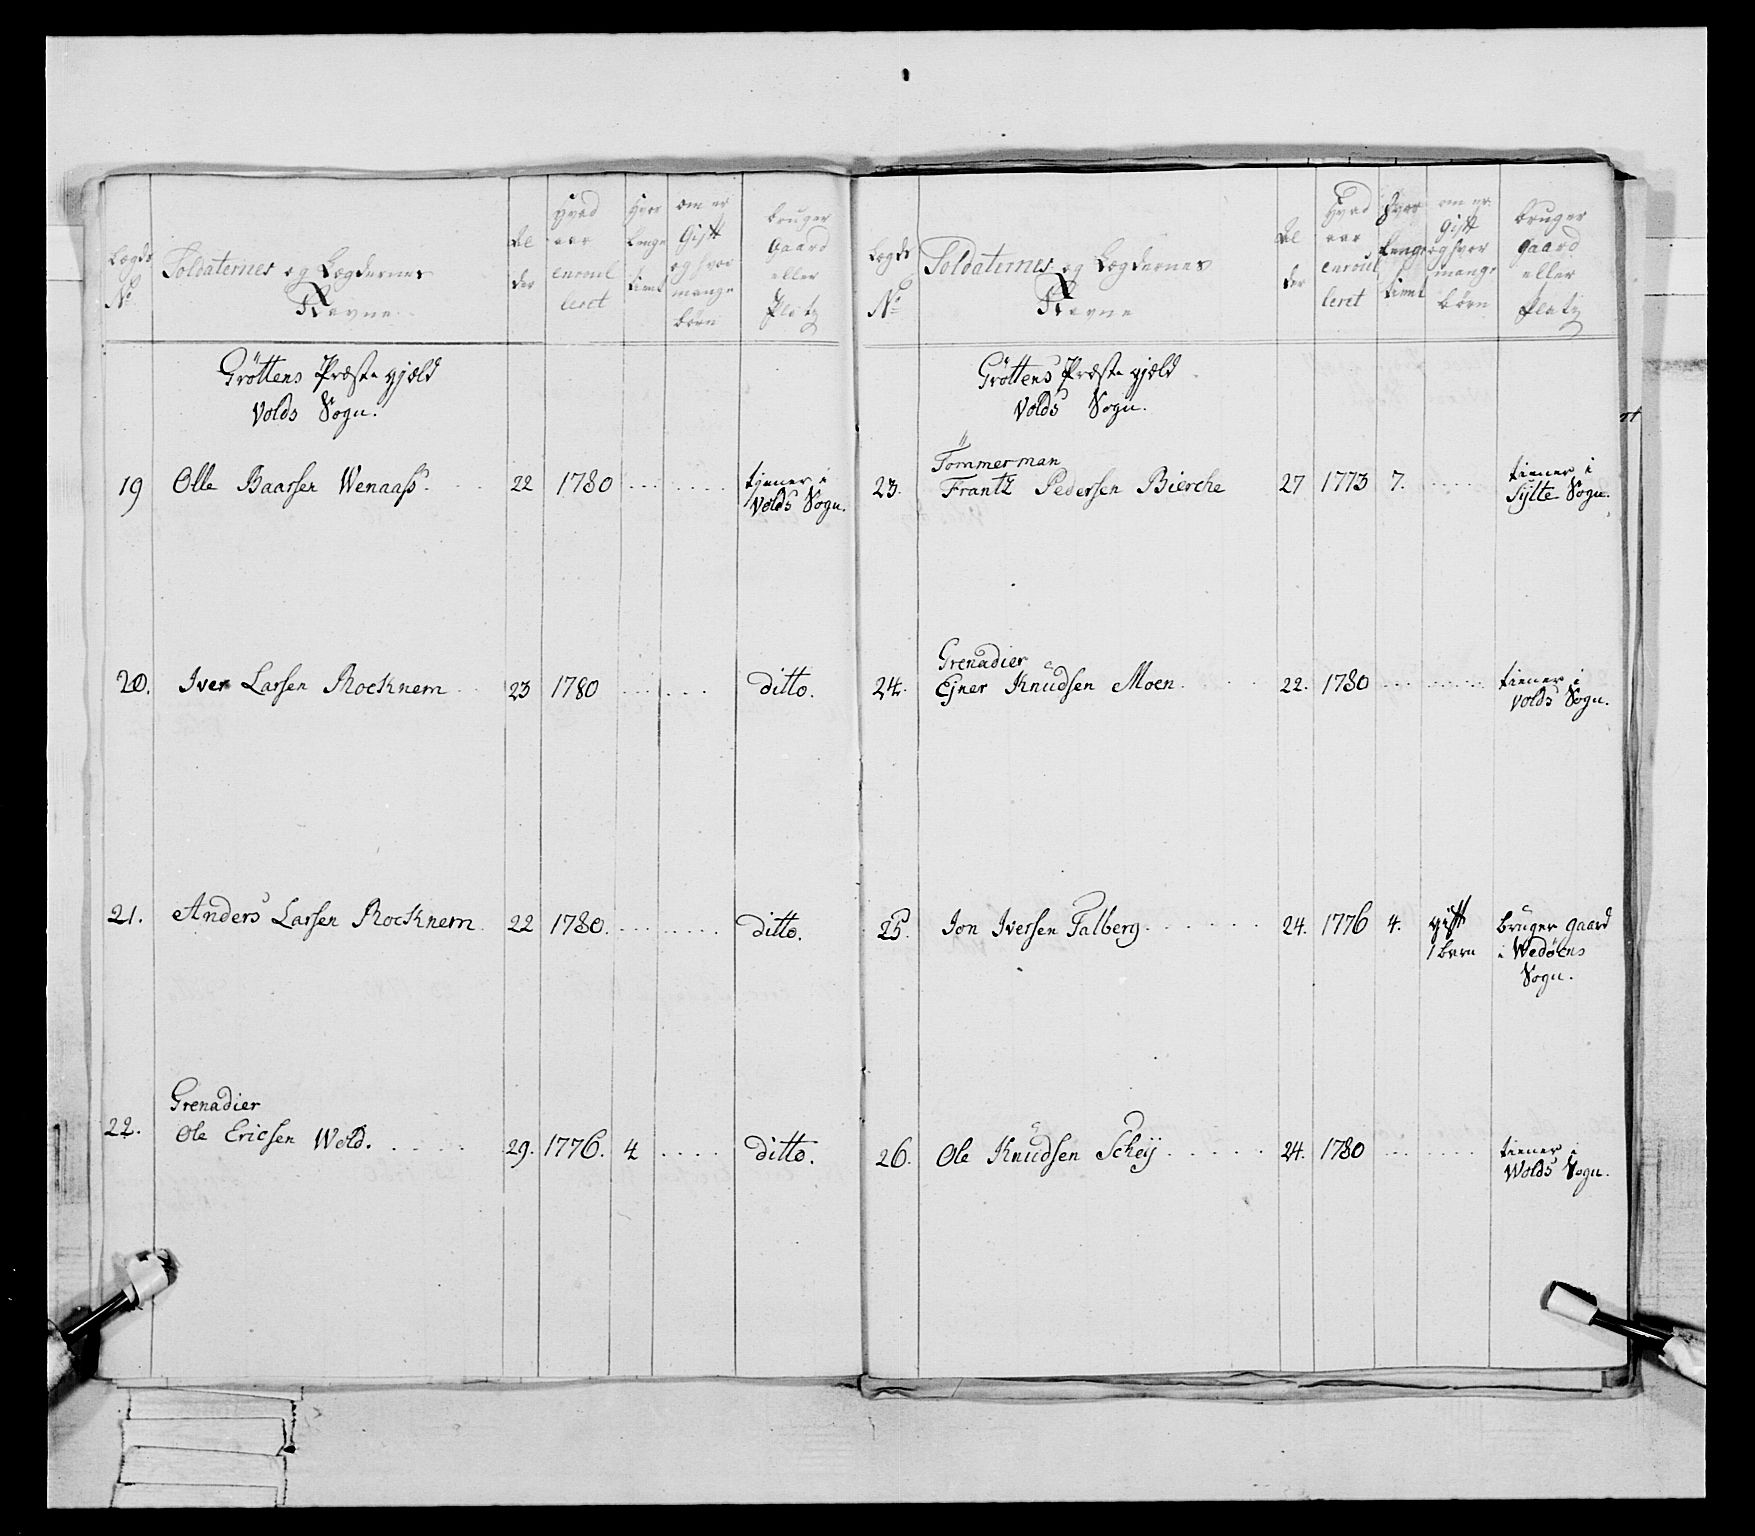 Lægds No
Soldaternes og Lægdernes Navne
Al der
Hvad aar enroul leret
Hvor Lenge tient
om er Gift og hvor mange börn
bruger gaard eller Platz
Gröttens Præste gjæld
Volds Sogn.
19 Olle Baarsen Wenaass. 22 1780 tjener i
Volds Sogn.
20. Iver Larsen Rocknem 23 1780 ditto.
21. Anders Larsen Rocknem 22 1780. ditto.
Grenadier
22. Ole Ericsen Wold. 29. 1776. 4 ditto.
Lægds No
Soldaternes og Lægdernes Navne
Al der
Hvad aar enroul leret
Hvor Lenge tient
om er Gift og hvor mange börn
bruger gaard eller Platz
Gröttens Præste gjæld
Volds Sogn.
Tömmerman
23. Frantz Pedersen Bierche 27 1773 7. tiener i
Sylte Sogn.
Grenadier
24. Ejner Knudsen Moen. 22. 1780 tiener i
Volds Sogn.
25. Jon Iversen Talberg 24. 1776 4. gift bruger gaard
1 barn i Wedöens
Sogn.
26. Ole Knudsen Scheij 24. 1780 tiener i
Wolds Sogn.